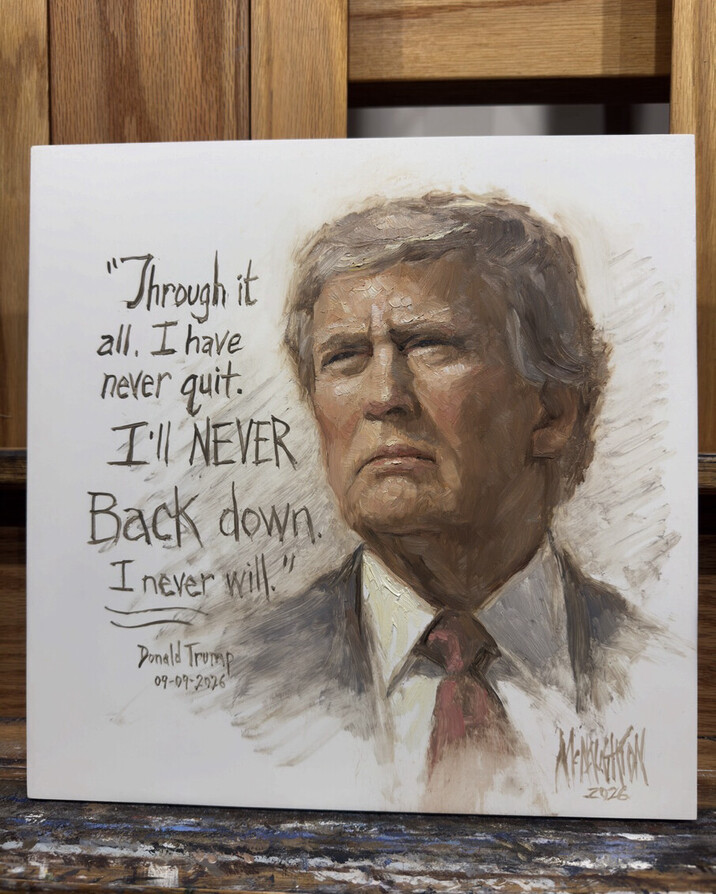 "Through it
all, I have
never quit.
I'll NEVER
Back down.
I never will."
Donald Trump
09-09-2026
McNAUGHTON
2026